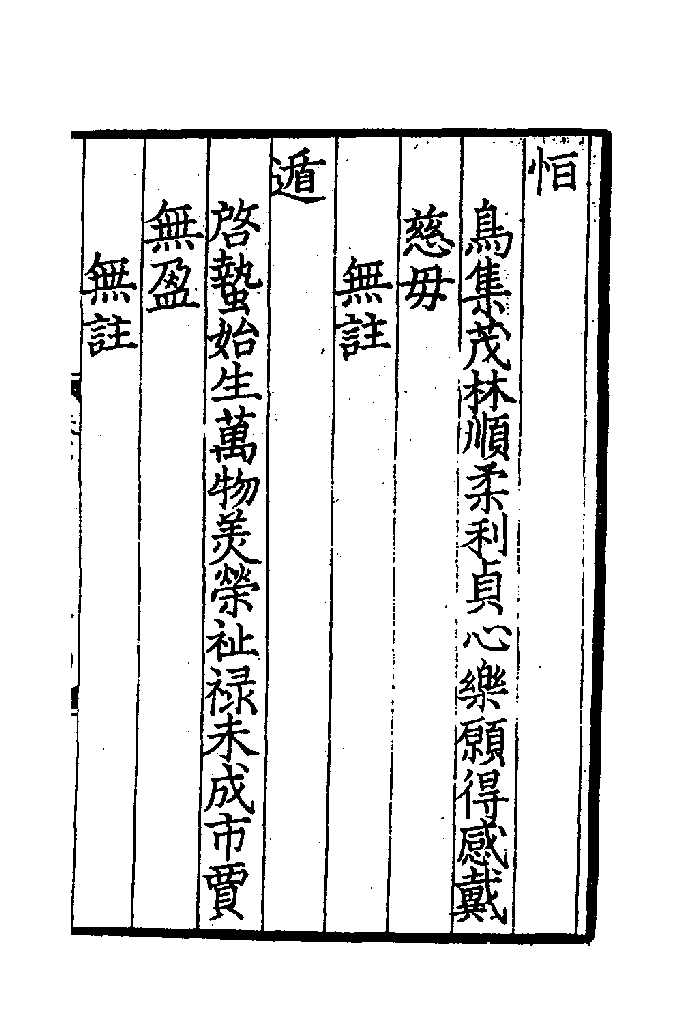 恒
鳥集茂林順柔利貞心樂願得感戴
慈毋
無註
遁
啓蟄始生萬物美榮祉禄未成市賈
無盈
無註